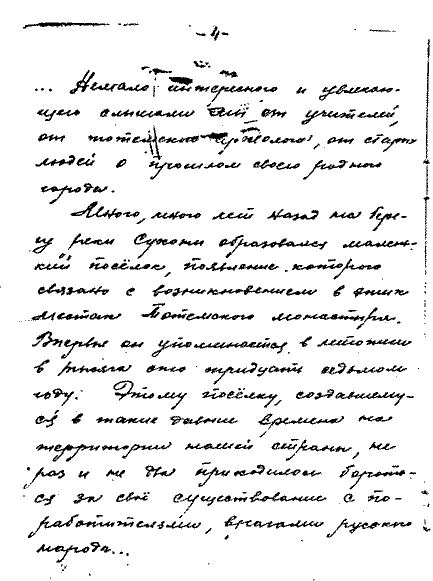 - 4 -
... Немало интересного и увлекаю-
щего слышали мы от учителей,
от тотемского археолога, от старых
людей о прошлом своего родного
города.
Много, много лет назад на бере-
гу реки Сухоны образовался малень-
кий посёлок, появление которого
связано с возникновением в этих
местах Тотемского монастыря.
Впервые он упоминается в летописи
в тысяча сто тридцать седьмом
году. Этому посёлку, создавшему-
ся в такие давние времена на
территории нашей страны, не
раз и не два приходилось бороть-
ся за своё существование с по-
работителями, врагами русского
народа...